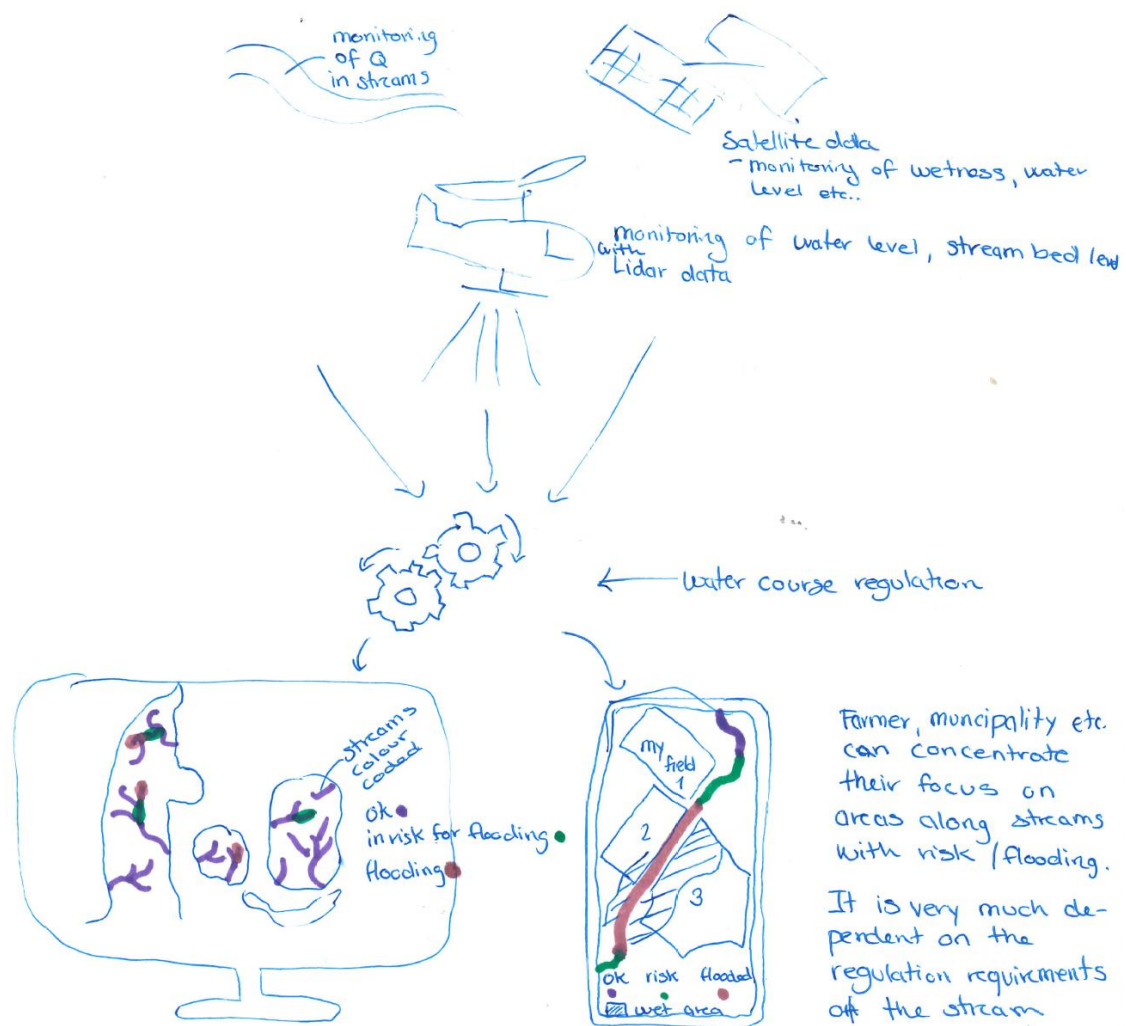 monitoring
of Q
in streams
Satellite data
- monitoring of wetness, water
level etc..
monitoring of water level, stream bed level
with
Lidar data
water course regulation
streams
colour
coded
ok
in risk for flooding
flooding
my
field
1
2
3
ok risk flooded
wet area
Farmer, muncipality etc.
can concentrate
their focus on
areas along streams
with risk / flooding.
It is very much de-
pendent on the
regulation requirements
of the stream